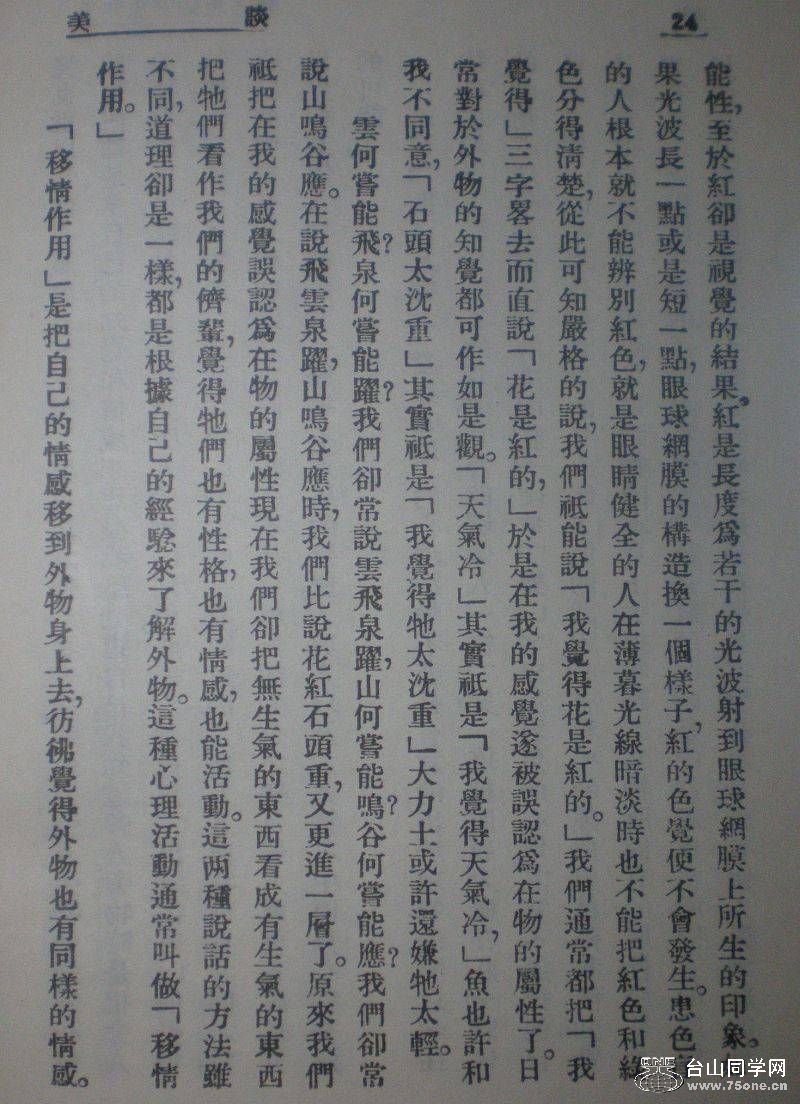 24
談美
能性，至於紅卻是視覺的結果。紅是長度爲若干的光波射到眼球網膜上所生的印象。
果光波長一點或是短一點，眼球網膜的構造換一個樣子，紅的色覺便不會發生。患色
的人根本就不能辨別紅色，就是眼睛健全的人在薄暮光線暗淡時也不能把紅色和綠
色分得清楚，從此可知嚴格的說，我們祇能說「我覺得花是紅的。」我們通常都把「我
覺得」三字畧去而直說「花是紅的，」於是在我的感覺遂被誤認爲在物的屬性了。日
常對於外物的知覺都可作如是觀。「天氣冷」其實祇是「我覺得天氣冷，」魚也許和
我不同意，「石頭太沈重」其實祇是「我覺得牠太沈重」大力士或許還嫌牠太輕。
雲何嘗能飛？泉何嘗能躍？我們卻常說雲飛泉躍，山何嘗能鳴？谷何嘗能應？我們卻常
說山鳴谷應。在說飛雲泉躍，山鳴谷應時，我們比說花紅石頭重，又更進一層了。原來我們
祇把在我的感覺誤認爲在物的屬性現在我們卻把無生氣的東西看成有生氣的東西
把牠們看作我們的儕輩，覺得牠們也有性格，也有情感，也能活動。這两種說話的方法雖
不同，道理卻是一樣，都是根據自己的經驗來了解外物。這種心理活動通常叫做「移情
作用。」
「移情作用」是把自己的情感移到外物身上去，彷彿覺得外物也有同樣的情感。
台山同学网
www.75one.cn